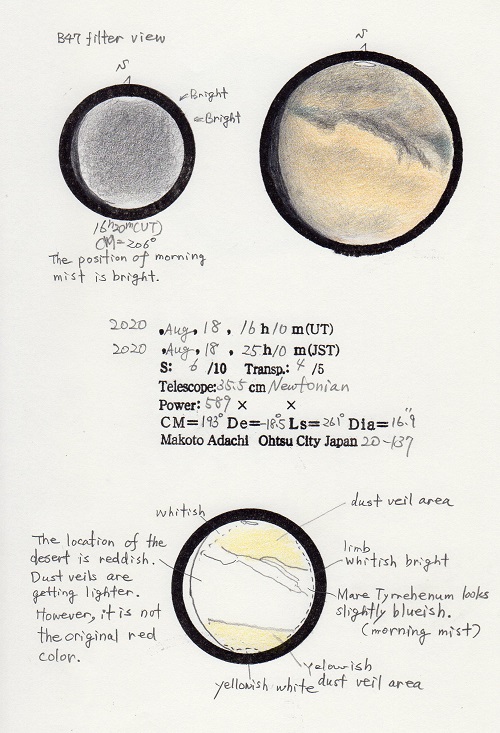 B47 filter view
N
N
Bright
Bright
16h20m(UT)
CM=206°
The position of morning
mist is bright.
2020 .Aug. 18 , 16 h 10 m(UT)
2020 .Aug. 18 , 25 h 10 m(JST)
S: 6 /10 Transp.: 4 /5
Telescope: 35.5 cm Newtonian
Power: 589 × ×
CM=193° De=-18.5° Ls=261° Dia=16.9"
Makoto Adachi Ohtsu City Japan 20-137
whitish
dust veil area
The location of the
desert is reddish.
Dust veils are
getting lighter.
However, it is not
the original red
color.
limb
whitish bright
Mare Tyrrhenum looks
slightly blueish.
(morning mist)
yelowish
dust veil area
yellowish white